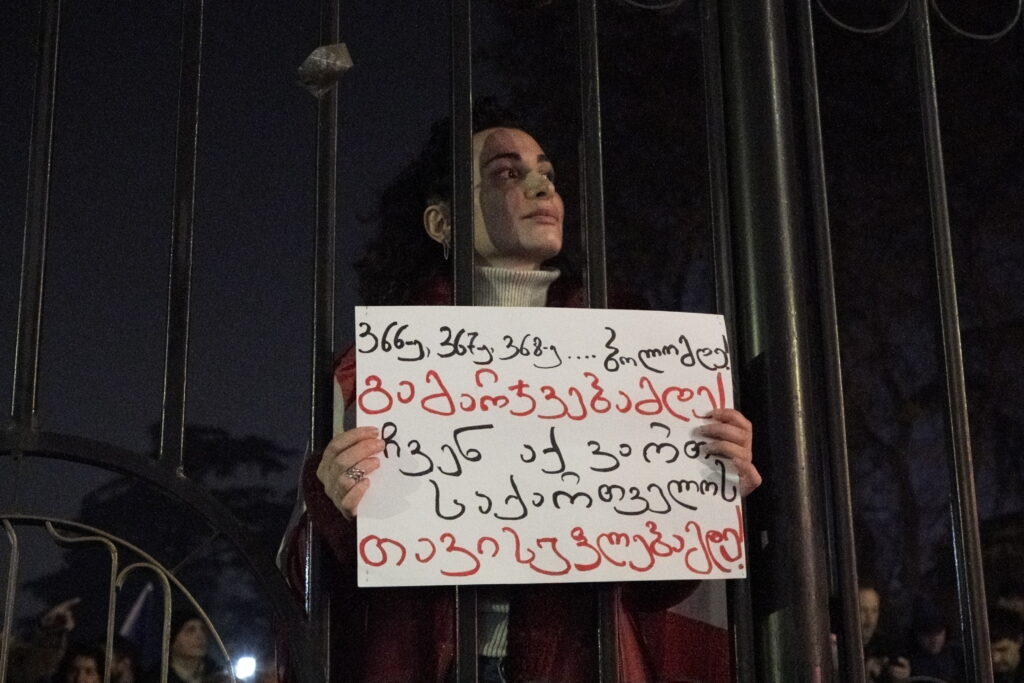 366-ე, 367ე, 368-ე .... ბოლომდე!
გამარჯვებამდე!
ჩვენ აქ ვართ
საქართველოს
თავისუფლებამდე!